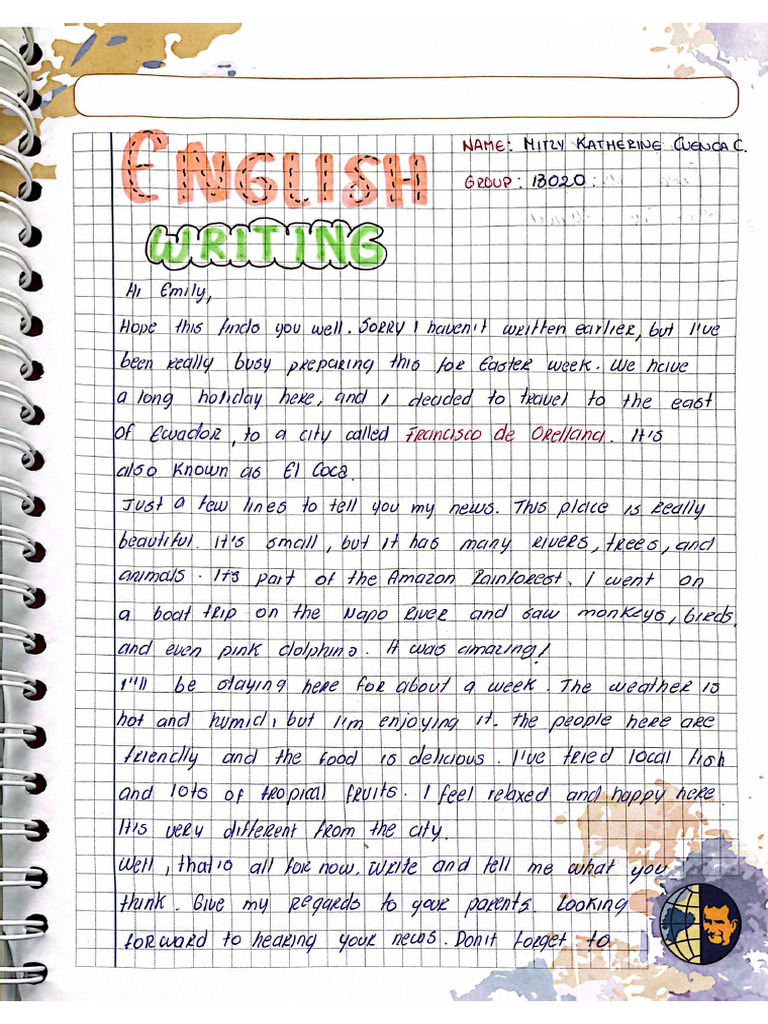 ENGLISH
WRITING
NAME: MITZY KATHERINE CUENCA C.
GROUP: 13020
Hi Emily,
Hope this finds you well. Sorry I haven't written earlier, but I've
been really busy preparing this for Easter week. We have
a long holiday here, and I decided to travel to the east
of Ecuador, to a city called Francisco de Orellana. It's
also known as El Coca.
Just a few lines to tell you my news. This place is really
beautiful. It's small, but it has many rivers, trees, and
animals. It's part of the Amazon Rainforest. I went on
a boat trip on the Napo River and saw monkeys, birds,
and even pink dolphins. It was amazing!
I'll be staying here for about a week. The weather is
hot and humid, but I'm enjoying it. The people here are
friendly and the food is delicious. I've tried local fish
and lots of tropical fruits. I feel relaxed and happy here.
It's very different from the city.
Well, that's all for now. Write and tell me what you
think. Give my regards to your parents. Looking
forward to hearing your news. Don't forget to